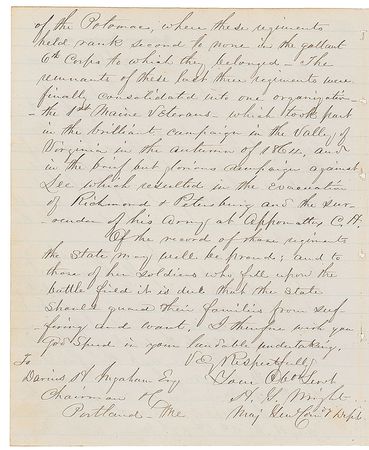 of the Potomac, where these regiments
held rank second to none in the gallant
6th Corps to which they belonged – The
remnants of these last three regiments were
finally consolidated into one organization –
– the 1st Maine Veterans – which took part
in the brilliant campaign in the Valley of
Virginia in the autumn of 1864, and
in the brief but glorious campaign against
Lee which resulted in the evacuation
of Richmond & Petersburg and the sur-
-render of his Army at Appomattox C.H.
Of the record of these regiments
the State may well be proud; and to
those of her soldiers who fell upon the
battle field it is due that the State
should guard their families from suf-
-fering and want. I therefore wish you
God Speed in your laudable undertaking.
Respectfully
Your Obt Servt
To
Darius H. Ingraham Esq
H. G. Wright
Chairman &c
Maj Genl Com'g Dept
Portland – Me